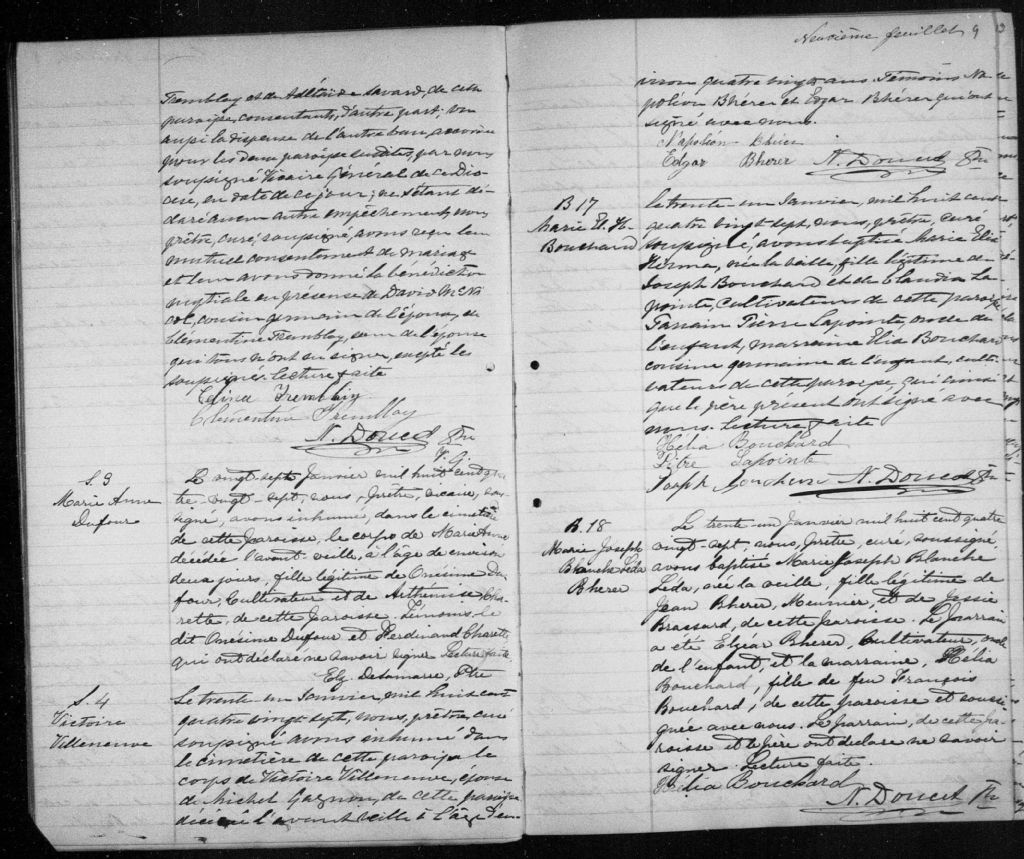 Tremblay et de Adélaide Savard, de cette
paroisse, consentants, d'autre part; vu
aussi la dispense de l'autre ban accordée
pour les deux paroisses susdites, par nous
soussigné Vicaire Général de ce Dio-
cèse, en date de ce jour; ne s'étant dé-
claré aucun autre empêchement, nous
prêtre, curé, soussigné, avons reçu leur
mutuel consentement de mariage
et leur avons donné la bénédiction
nuptiale en présence de David McNi-
col, cousin germain de l'époux, de
Clémentine Tremblay, soeur de l'épouse
qui tous n'ont su signer, excepté les
soussignés. Lecture faite
Edina Tremblay
Clémentine Tremblay
N. Doucet Ptre
V. G.
S. 3
Marie Anne
Dufour
Le vingt-sept Janvier mil huit cent qua-
tre-vingt-sept, nous, Prêtre, vicaire, sous-
signé, avons inhumé, dans le cimetière
de cette Paroisse, le corps de Marie Anne
décédée l'avant-veille, à l'âge de environ
deux jours, fille légitime de Onésime Du-
four, Cultivateur et de Arthémise Cha-
rette, de cette Paroisse. Témoins le
dit Onésime Dufour et Ferdinand Charette
qui ont déclaré ne savoir signer Lecture faite.
Elz Delamarre, Ptre
S. 4
Victoire
Villeneuve
Le trente un Janvier, mil huit cent
quatre vingt sept, nous, prêtre, curé
soussigné avons inhumé dans
le cimetière de cette paroisse le
corps de Victoire Villeneuve, épouse
de Michel Gagnon, de cette paroisse
décédé l'avant veille à l'âge d'en-
Neuvième feuillet 9
viron quatre vingt ans. Témoins Na-
poléon Bhérer et Edgar Bhérer qui ont
signé avec nous.
Napoléon Bhérer
Edgar Bherer N. Doucet Ptre
B 17
Marie E. H.
Bouchard
Le trente un Janvier, mil huit cent
quatre vingt sept, nous, prêtre, curé
soussigné, avons baptisé Marie Elia
Herma, née la veille, fille légitime de
Joseph Bouchard et de Claudia La-
pointe, cultivateurs de cette paroisse
Parrain Pierre Lapointe, oncle de
l'enfant, marraine Elia Bouchard
cousine germaine de l'enfant, culti-
vateurs de cette paroisse, qui ainsi
que le père présent ont signé avec
nous. Lecture faite
Hélia Bouchard
Pitre Lapointe
Joseph Bouchard N. Doucet Ptre
B. 18
Marie Joseph
Blanche Léda
Bherer
Le trente-un Janvier mil huit cent quatre
vingt-sept, nous, Prêtre, curé, soussigné
avons baptisé Marie Joseph Blanche
Léda, née la veille, fille légitime de
Jean Bherer, Meunier, et de Jessie
Brassard, de cette paroisse. Le Parrain
a été Elzéar Bherer, Cultivateur, oncle
de l'enfant, et la marraine, Hélia
Bouchard, fille de feu François
Bouchard, de cette paroisse et soussi-
gnée avec nous. Le parrain, de cette pa-
roisse et le père ont déclaré ne savoir
signer Lecture faite.
Hélia Bouchard
N. Doucet Ptre